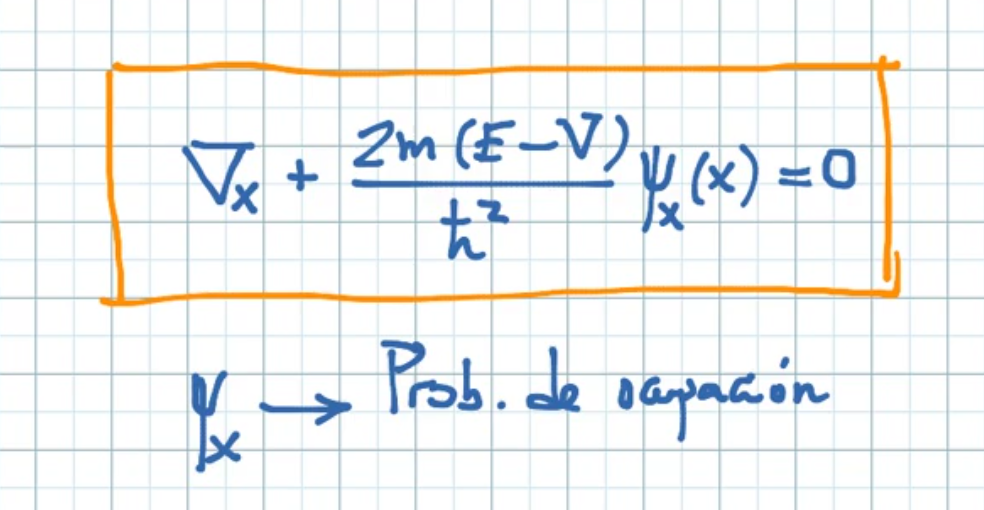 ∇ₓ + 2m (E – V) / ħ² ψₓ(x) = 0
ψₓ → Prob. de ocupación